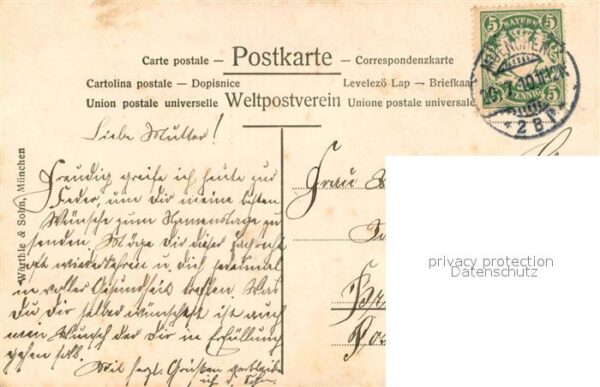 Carte postale – Postkarte – Correspondenzkarte
Cartolina postale – Dopisnice Levelező Lap – Briefkaart
Union postale universelle Weltpostverein Unione postale universale
5 BAYERN 5
PFENNIG
MUENCHEN
2 B
Würthle & Sohn, München
Liebe Mutter!
Freudig greife ich heute zur
Feder, um Dir meine besten
Wünsche zum Namenstage zu
senden. Möge Dir dieser
oft wiederkehren u. Dich jedesmal
in voller Gesundheit treffen. Was
Du Dir selber wünschest ist auch
mein Wunsch der Dir in Erfüllung
gehen soll.
Mit herzl. Grüßen verbleibe
ich d. Sohn
Frau
privacy protection
Datenschutz